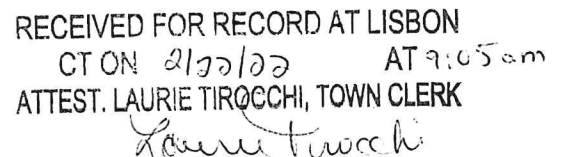 RECEIVED FOR RECORD AT LISBON
CT ON 2/22/22 AT 9:05 am
ATTEST. LAURIE TIROCCHI, TOWN CLERK
Laurie Tirocchi